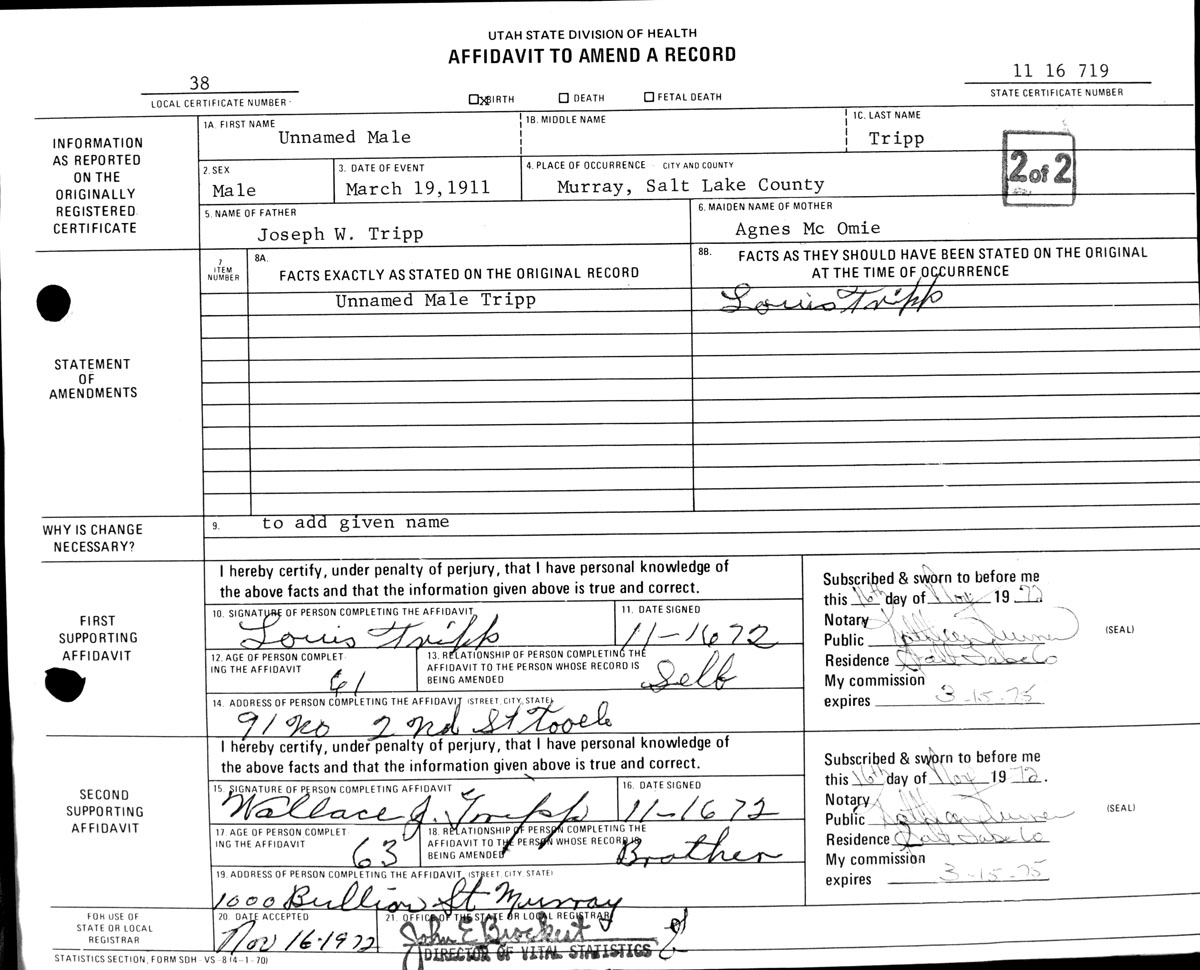 UTAH STATE DIVISION OF HEALTH
AFFIDAVIT TO AMEND A RECORD
38
LOCAL CERTIFICATE NUMBER
☒ BIRTH ☐ DEATH ☐ FETAL DEATH
11 16 719
STATE CERTIFICATE NUMBER
INFORMATION
AS REPORTED
ON THE
ORIGINALLY
REGISTERED
CERTIFICATE
1A. FIRST NAME
Unnamed Male
1B. MIDDLE NAME
1C. LAST NAME
Tripp
2 of 2
2. SEX
Male
3. DATE OF EVENT
March 19,1911
4. PLACE OF OCCURRENCE - CITY AND COUNTY
Murray, Salt Lake County
5. NAME OF FATHER
Joseph W. Tripp
6. MAIDEN NAME OF MOTHER
Agnes Mc Omie
STATEMENT
OF
AMENDMENTS
7
ITEM
NUMBER
8A.
FACTS EXACTLY AS STATED ON THE ORIGINAL RECORD
8B. FACTS AS THEY SHOULD HAVE BEEN STATED ON THE ORIGINAL
AT THE TIME OF OCCURRENCE
Unnamed Male Tripp
Louis Tripp
WHY IS CHANGE
NECESSARY?
9. to add given name
FIRST
SUPPORTING
AFFIDAVIT
I hereby certify, under penalty of perjury, that I have personal knowledge of
the above facts and that the information given above is true and correct.
10. SIGNATURE OF PERSON COMPLETING THE AFFIDAVIT
Louis Tripp
11. DATE SIGNED
11-16 72
12. AGE OF PERSON COMPLET-
ING THE AFFIDAVIT
61
13. RELATIONSHIP OF PERSON COMPLETING THE
AFFIDAVIT TO THE PERSON WHOSE RECORD IS
BEING AMENDED
Self
14. ADDRESS OF PERSON COMPLETING THE AFFIDAVIT (STREET, CITY, STATE)
91 No 2nd St Tooele
Subscribed & sworn to before me
this 16th day of Nov 19 72
Notary
Public Kathleen Turner
Residence Salt Lake Co
My commission
expires 3-15-75
(SEAL)
SECOND
SUPPORTING
AFFIDAVIT
I hereby certify, under penalty of perjury, that I have personal knowledge of
the above facts and that the information given above is true and correct.
15. SIGNATURE OF PERSON COMPLETING AFFIDAVIT
Wallace J. Tripp
16. DATE SIGNED
11-16 72
17. AGE OF PERSON COMPLET-
ING THE AFFIDAVIT
63
18. RELATIONSHIP OF PERSON COMPLETING THE
AFFIDAVIT TO THE PERSON WHOSE RECORD IS
BEING AMENDED
Brother
19. ADDRESS OF PERSON COMPLETING THE AFFIDAVIT (STREET, CITY, STATE)
1000 Bullion St Murray
Subscribed & sworn to before me
this 16th day of Nov 19 72.
Notary
Public Kathleen Turner
Residence Salt Lake Co
My commission
expires 3-15-75
(SEAL)
FOR USE OF
STATE OR LOCAL
REGISTRAR
20. DATE ACCEPTED
Nov 16-1972
21. OFFICE OF THE STATE OR LOCAL REGISTRAR
John E Brockert
DIRECTOR OF VITAL STATISTICS
STATISTICS SECTION, FORM SDH-VS-8 (4-1-70)